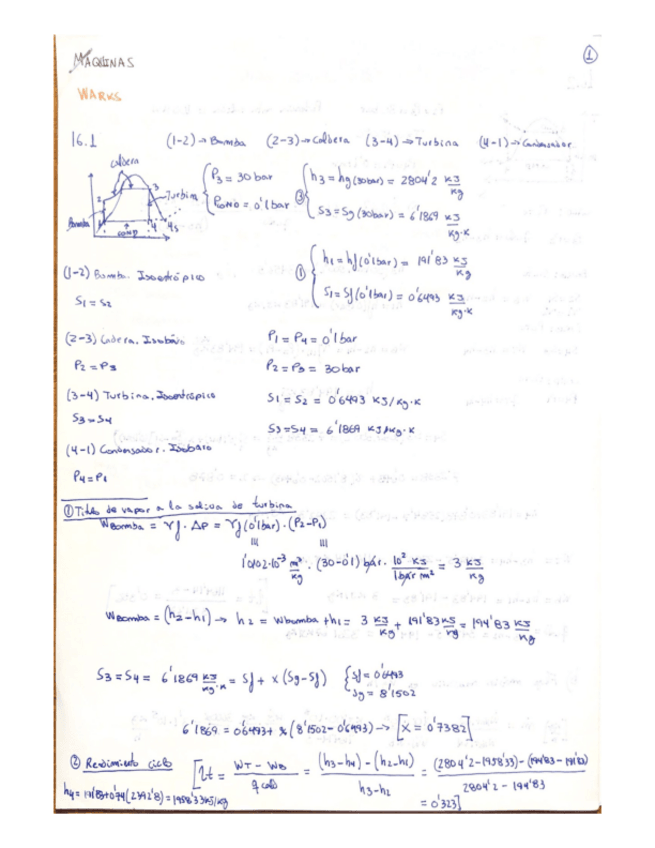 ①
MÁQUINAS
WARKS
16.1 (1-2) → Bomba (2-3) → Caldera (3-4) → Turbina (4-1) → Condensador
caldera
P3 = 30 bar
PCOND = 0'1 bar
③ h3 = hg (30bar) = 2804'2 KJ/Kg
S3 = Sg (30bar) = 6'1869 KJ/Kg·K
2
3
Turbina
Bomba
1
4
4s
cond
① h1 = hf (0'1bar) = 191'83 KJ/Kg
S1 = Sf (0'1bar) = 0'6493 KJ/Kg·K
(1-2) Bomba. Isoentrópico
S1 = S2
(2-3) Caldera. Isobaro
P2 = P3
P1 = P4 = 0'1 bar
P2 = P3 = 30 bar
(3-4) Turbina. Isoentrópico
S3 = S4
S1 = S2 = 0'6493 KJ/Kg·K
S3 = S4 = 6'1869 KJ/Kg·K
(4-1) Condensador. Isobaro
P4 = P1
① Título de vapor a la salida de turbina
WBomba = Vf · ΔP = Vf (0'1bar) · (P2-P1)
1'0102·10⁻³ m³/kg · (30-0'1) bar · 10² KJ/1bar m³ = 3 KJ/Kg
WBomba = (h2-h1) → h2 = Wbomba + h1 = 3 KJ/Kg + 191'83 KJ/Kg = 194'83 KJ/Kg
S3 = S4 = 6'1869 KJ/Kg·K = Sf + x (Sg-Sf) { Sf = 0'6493
Sg = 8'1502
6'1869 = 0'6493 + x (8'1502 - 0'6493) → [x = 0'7382]
② Rendimiento ciclo [ηt = WT - WB / q cald = (h3-h4) - (h2-h1) / h3-h2 = (2804'2-1958'33) - (194'83 - 191'83) / 2804'2 - 194'83
h4 = 191'83+0'74(2392'8) = 1958'33 KJ/Kg
= 0'323]